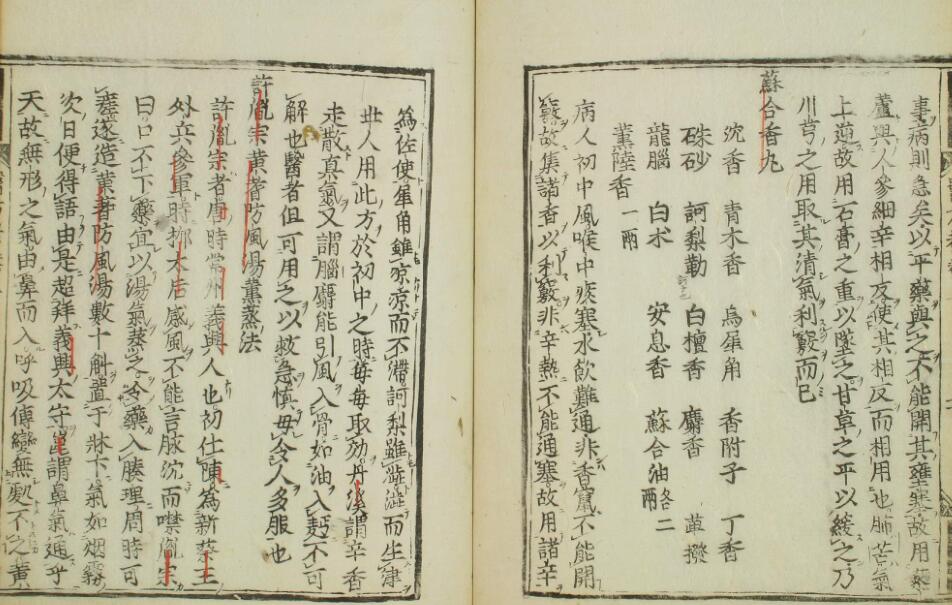 事病則急矣以平藥與之不能開其壅塞故用藜
蘆與人參細辛相反使其相反而相用也肺苦氣
上逆故用石膏之重以墜之甘草之平以緩之乃
川芎之用取其清氣利竅而已
蘇合香丸
沈香 青木香 烏犀角 香附子 丁香
硃砂 訶梨勒 白檀香 麝香 蓽撥
龍腦 白朮 安息香 蘇合油各二兩
薰陸香一兩
病人初中風喉中痰塞水飲難通非香竄不能開
竅故集諸香以利竅非辛熱不能通塞故用諸辛
為佐使犀角雖涼涼而不滯訶梨雖澁澁而生津
世人用此方於初中之時每每取効丹溪謂辛香
走散真氣又謂腦麝能引風入骨如油入麪不可
解也醫者但可用之以救急慎毋令人多服也
許胤宗黃蓍防風湯薰蒸法
許胤宗者唐時常州義興人也初仕陳為新蔡王
外兵參軍時柳太后感風不能言脉沈而噤胤宗
曰口不下藥宜以湯氣蒸之令藥入腠理周時可
瘥遂造黃蓍防風湯數十斛置于牀下氣如烟霧
次日便得語由是超拜義興太守崑謂鼻氣通乎
天故無形之氣由鼻而入呼吸傳變無處不之黃